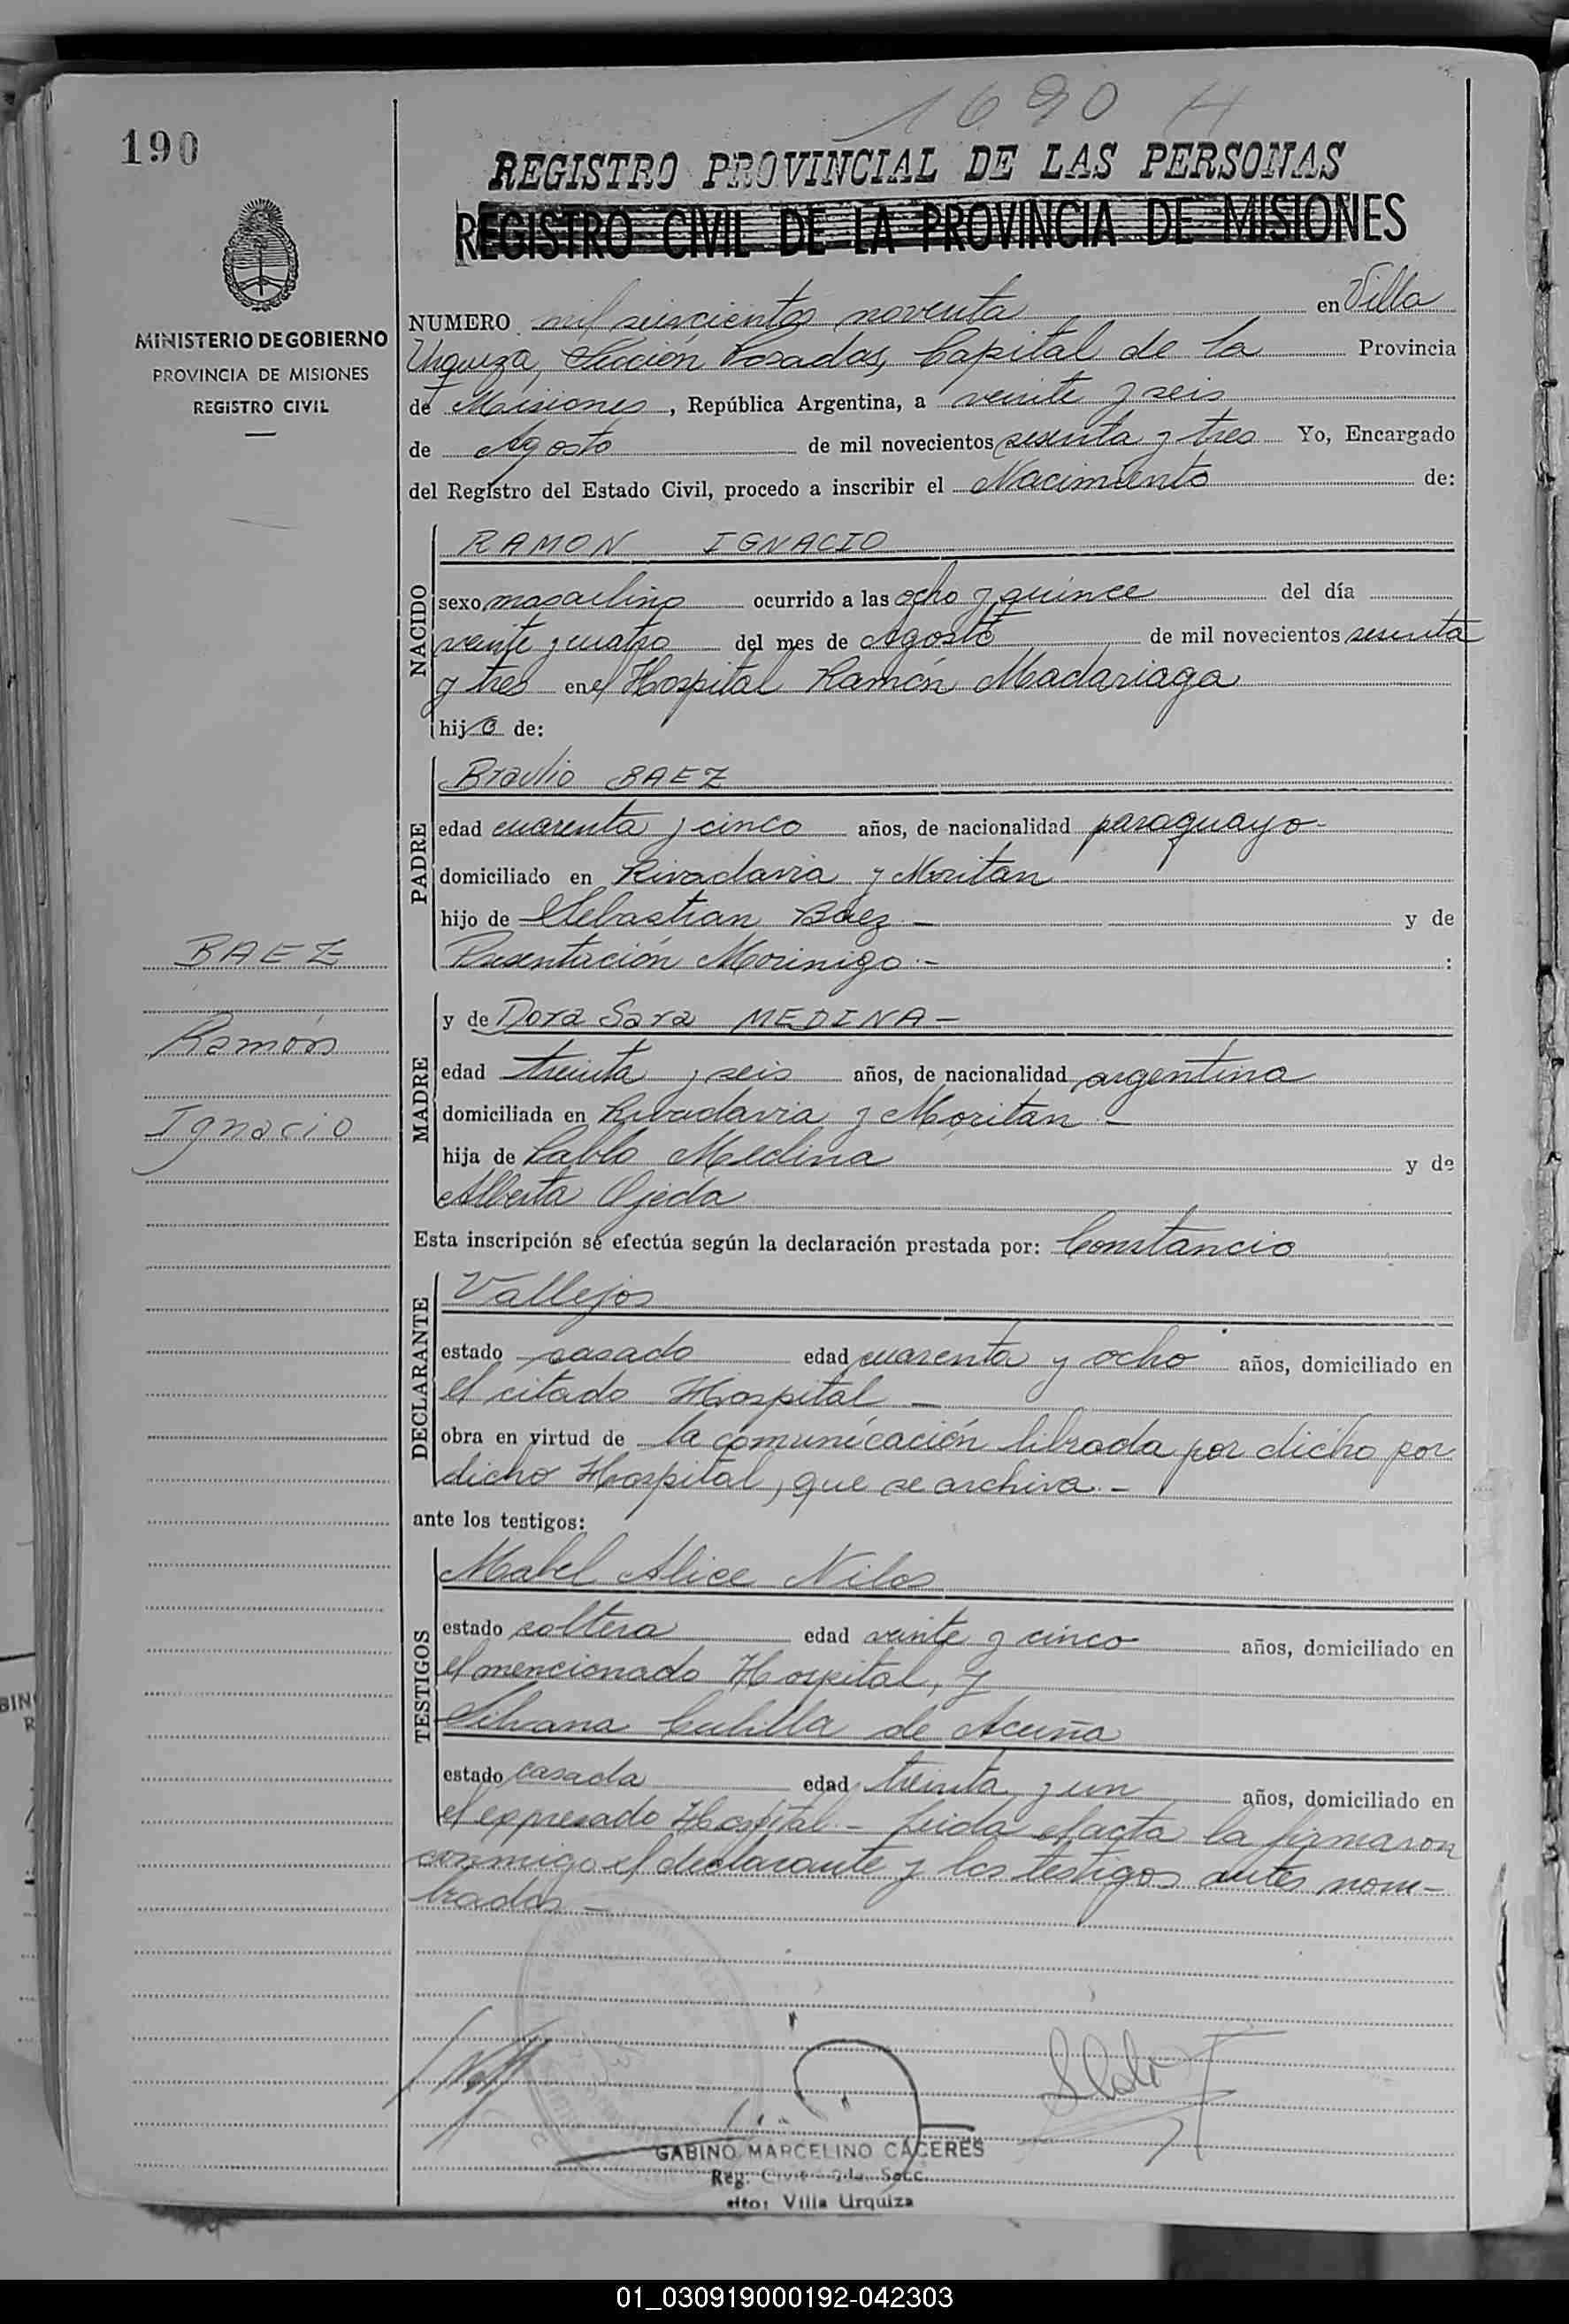 1690 H
190
REGISTRO PROVINCIAL DE LAS PERSONAS
REGISTRO CIVIL DE LA PROVINCIA DE MISIONES
MINISTERIO DE GOBIERNO
PROVINCIA DE MISIONES
REGISTRO CIVIL
NUMERO mil seiscientos noventa en Villa
Urquiza, Sección Posadas, Capital de la Provincia
de Misiones, República Argentina, a veinte y seis
de Agosto de mil novecientos sesenta y tres Yo, Encargado
del Registro del Estado Civil, procedo a inscribir el Nacimiento de:
NACIDO
RAMON IGNACIO
sexo masculino ocurrido a las ocho y quince del día
veinte y cuatro del mes de Agosto de mil novecientos sesenta
y tres en el Hospital Ramón Madariaga
hijo de:
PADRE
Braulio BAEZ
edad cuarenta y cinco años, de nacionalidad paraguayo-
domiciliado en Rivadavia y Moritan
hijo de Sebastian Baez - y de
Presentación Morinigo.- :
BAEZ
Ramón
Ignacio
MADRE
y de Dora Sara MEDINA-
edad treinta y seis años, de nacionalidad argentina
domiciliada en Rivadavia y Moritan -
hija de Pablo Medina y de
Alberta Ojeda
Esta inscripción se efectúa según la declaración prestada por: Constancio
DECLARANTE
Vallejos
estado casado edad cuarenta y ocho años, domiciliado en
el citado Hospital -
obra en virtud de la comunicación librada por dicho por
dicho Hospital, que se archiva.-
ante los testigos:
TESTIGOS
Mabel Alice Nilos
estado soltera edad veinte y cinco años, domiciliado en
el mencionado Hospital, y
Silvana Cubilla de Acuña
estado casada edad treinta y un años, domiciliado en
el expresado Hospital.- Leida el acta la firmaron
conmigo el declarante y los testigos antes nom-
brados -
GABINO MARCELINO CACERES
Reg. Civil Secc.
Villa Urquiza
01_030919000192-042303